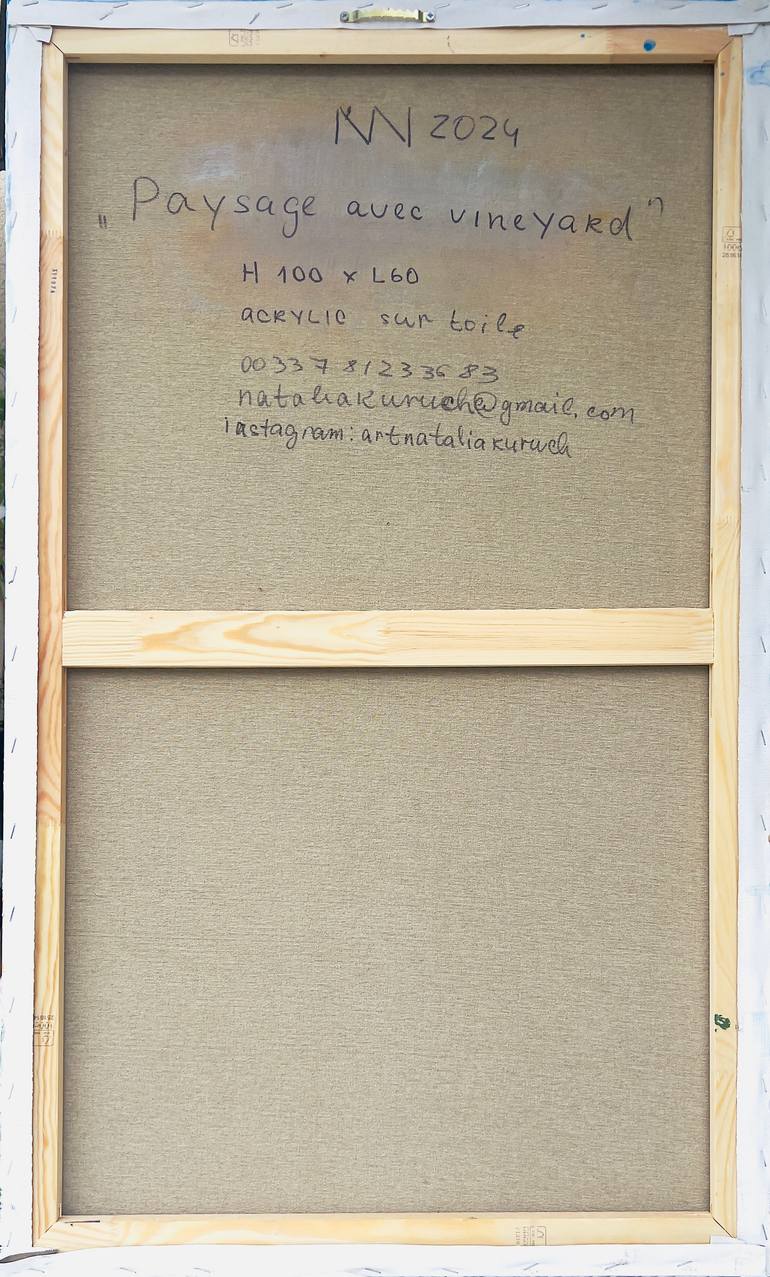 2024
„Paysage avec vineyard”
H 100 x L60
ACRYLIC sur toile
00337 81233683
nataliakuruch@gmail.com
instagram: artnataliakuruch